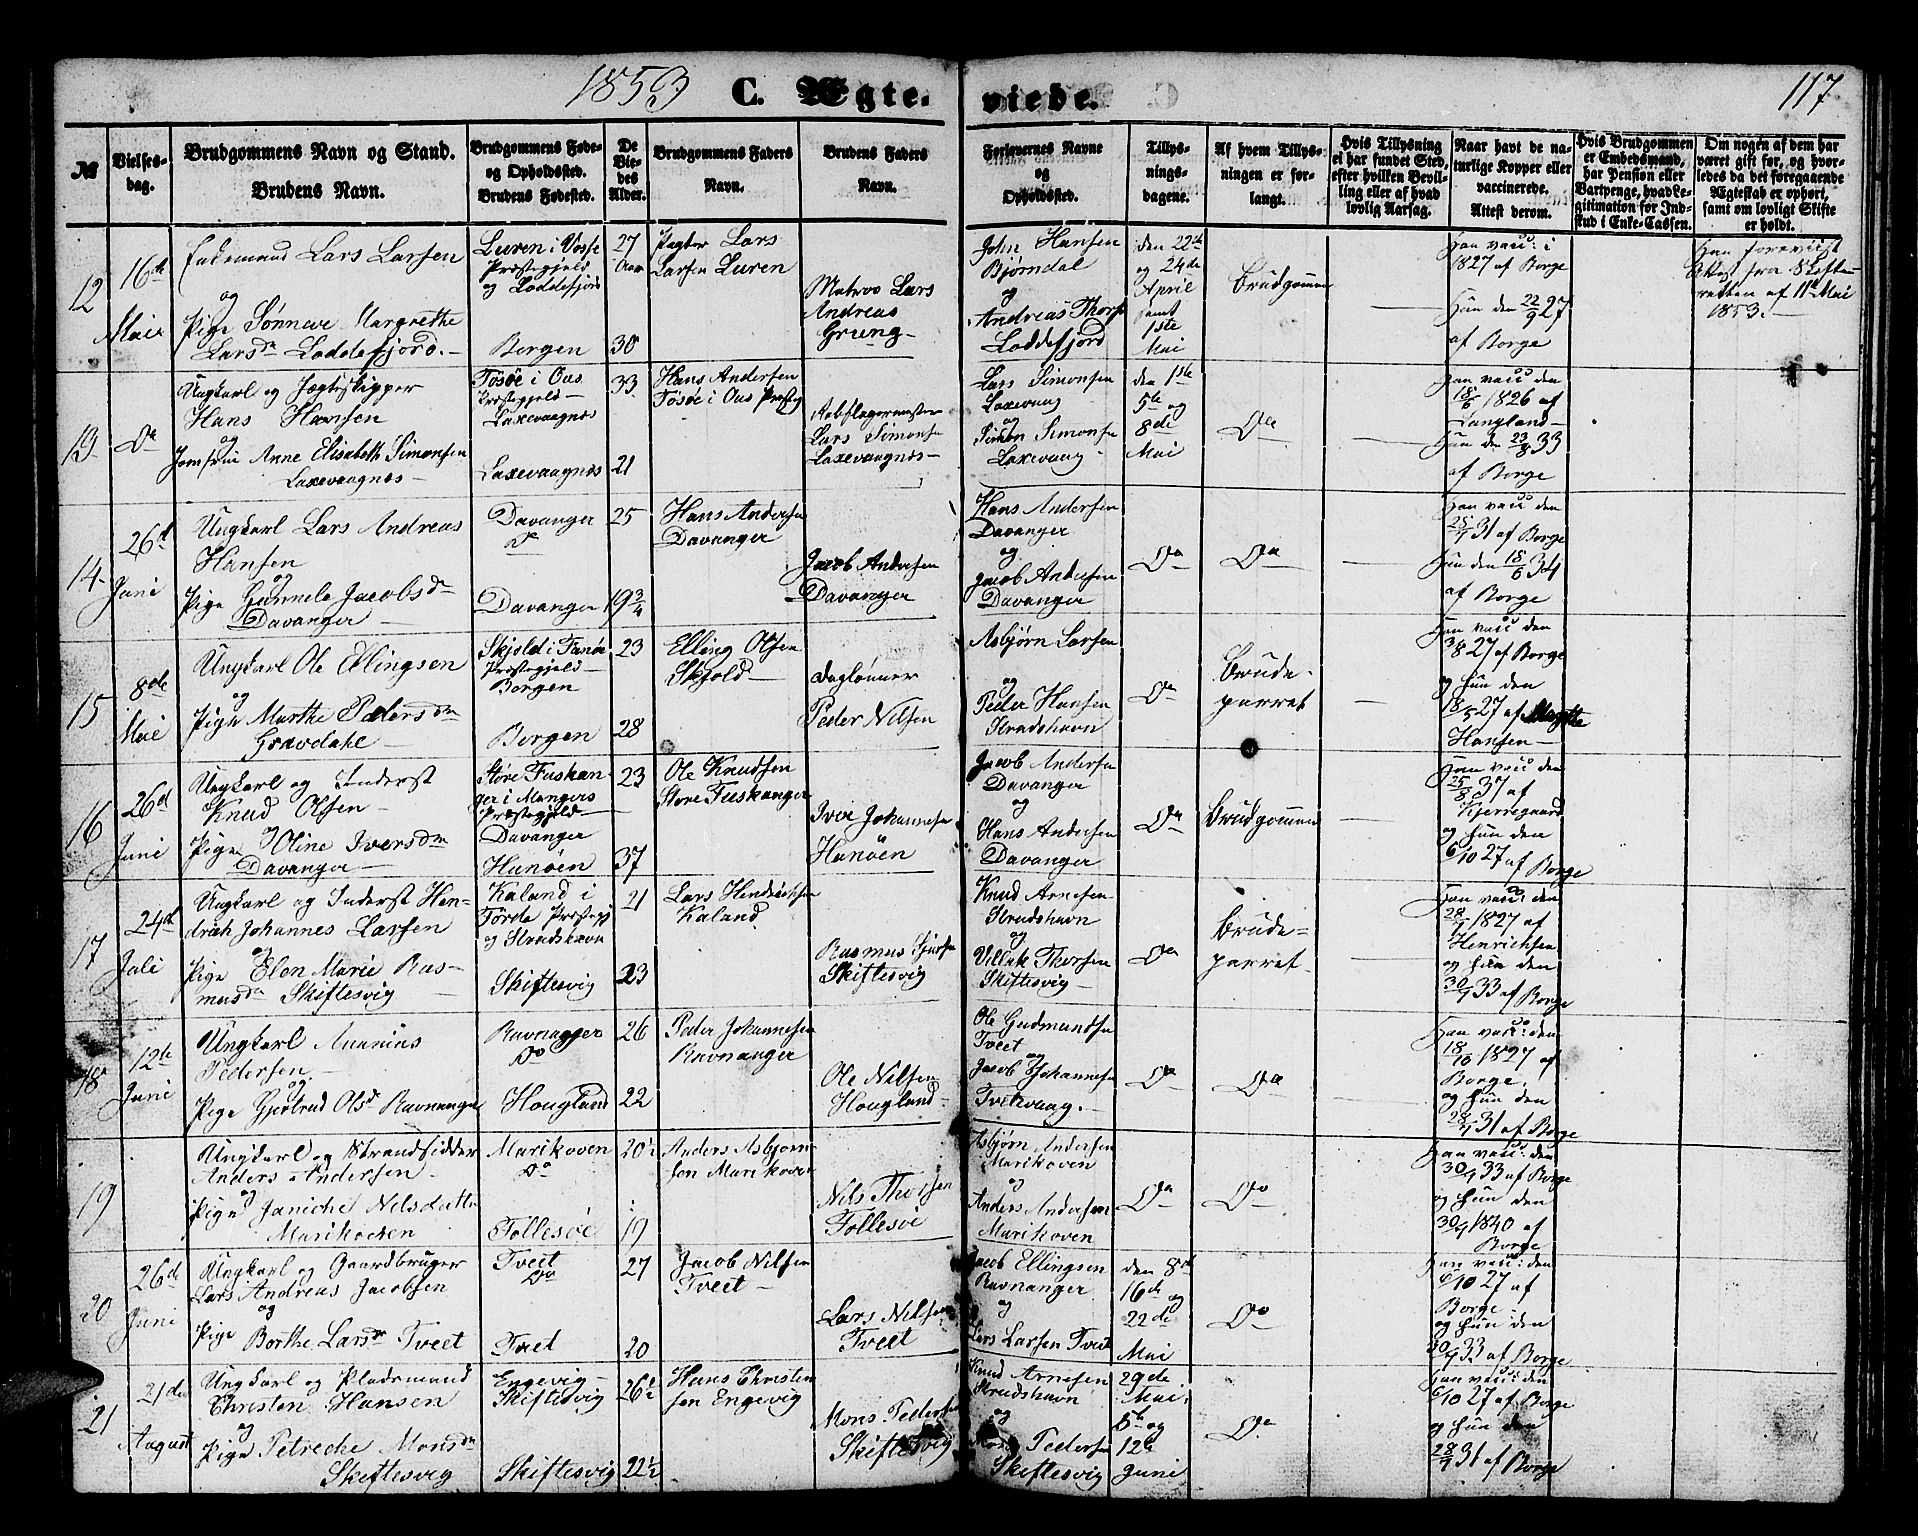 1853 C. Ægte-viede. 117
№
Vielses-dag.
Brudgommens Navn og Stand.
Brudens Navn.
Brudgommens Føde- og Opholdssted.
Brudens Fødested.
De Vie-des Alder.
Brudgommens Faders Navn.
Brudens Faders Navn.
Forlovernes Navne og Opholdssted.
Tillys-nings-dagene.
Af hvem Tillys-ningen er for-langt.
Hvis Tillysning ei har fundet Sted, efter hvilken Bevil-ling eller af hvad lovlig Aarsag.
Naar havt de na-turlige Kopper eller vaccinerede.
Attest derom.
Hvis Brudgommen er Embedsmand, har Pension eller Vartpenge, hvad Le-gitimation for Ind-skud i Enke-Cassen.
Om nogen af dem har været gift før, og hvor-ledes da det foregaaende Ægteskab er ophørt, samt om lovligt Skifte er holdt.
12
16de Mai
Enkemand Lars Larsen
og
Pige Sønneve Margrethe
Larsdr Loddefjord.
Luren i Vosse
Præstegjeld
og Loddefjord
Bergen
27 Aar
30
Pagter Lars
Larsen Luren
Matros Lars
Andreas
Grung
John Hansen
Bjørndal
og
Andreas Thorp
Loddefjord
den 22de
og 24de
April
samt
1ste
Mai
Brudgommen
Han vacc: i
1827 af Borge
Hun den 22/9 27
af Borge
Han forevist
Attest fra Skifte-
retten af 11te Mai
1853.
13
Do
Ungkarl og Jægteskipper
Hans Hansen
og
Jomfru Anne Elisabeth Simonsen
Laxevaagnes
Tøsøe i Ous
Præstegjeld
Laxevaagnes
Laxevaagnes
33
21
Hans Andersen
Tøsøe i Ous Præstegj
Lars Simonsen
Laxevaagnes
Lars Simonsen
Laxevaag
og
Simon Simonsen
Laxevaag
den 1ste
5te og
8de
Mai
Do
Han vacc den
18/6 1826 af
Langland
Hun den 23/8 33
af Borge
14
26de Juni
Ungkarl Lars Andreas
Hansen
og
Pige Gunnele Jacobsdr
Davanger
Davanger
Do
Davanger
25
19 3/4
Hans Andersen
Davanger
Jacob Andersen
Davanger
Hans Andersen
Davanger
og
Jacob Andersen
Davanger
Do
Do
Han vacc den
25/9 31 af Borge
Hun den 18/6 34
af Borge
15
8de Mai
Ungkarl Ole Ellingsen
og
Pige Marthe Pedersdr
Gravdahl
Skjold i Fanøe
Præstegjeld
Bergen
Bergen
23
28
Elling Olsen
Skjold
Daglønner
Peder Nilsen
Asbjørn Larsen
og
Peder Hansen
Stradshavn
Do
Brude-
parret
Han vacc den
3/8 27 af Borge
og Hun den
18/5 27 af
Hansen
16
26de Juni
Ungkarl og Inderst
Knud Olsen
og
Pige Oline Iversdr
Davanger
Store Fuskan-
ger i Mangers
Præstegjeld
Davanger
Hanøen
23
37
Ole Knudsen
Store Fuskanger
Iver Johannesen
Hanøen
Jacob Andersen
Davanger
og
Hans Andersen
Davanger
Do
Brudgommen
Han vacc den
25/8 37 af
Kjerregaard
og Hun den
6/10 27 af Borge
17
24de Juli
Ungkarl og Inderst Hen-
drich Johannes Larsen
og
Pige Elen Marie Ras-
musdr Skiftesvig
Kaland i
Førde Præstegj
og Stradshavn
Skiftesvig
21
23
Lars Hendrichsen
Kaland
Rasmus
Skiftesvig
Knud Arnesen
Stradshavn
og
Villak Thorsen
Skiftesvig
Do
Brude-
parret
Han vacc den
28/7 1827 af
Henrichsen
og Hun den
30/4 33 af Borge
18
12te Juni
Ungkarl Ananias
Pedersen
og
Pige Gjertrud Olsdr Ravnanger
Ravnanger
Do
Hougland
26
22
Peder Johannesen
Ravnanger
Ole Nilsen
Hougland
Ole Gudmundsen
Tveet
og
Jacob Johannesen
Tvetvaag.
Do
Do
Han vacc: den
18/10 1827 af
Borge
og Hun den
28/4 31 af Borge
19
Ungkarl og Strandsidder
Anders Andersen
og
Pige Janiche Nilsdatter
Marikoven
Marikoven
Do
Follesøe
20½
19
Anders Asbjørn-
sen Marikoven
Nils Thorsen
Follesøe
Asbjørn Andersen
Marikoven
og
Anders Andersen
Marikoven
Do
Do
Han vacc: den
30/4 33 af Borge
og Hun den
30/4 1840 af
Borge
20
26de Juni
Ungkarl og Gaardbruger
Lars Andreas Jacobsen
og
Pige Borthe Larsdr Tveet
Tveet
Do
Tveet
27
20
Jacob Nilsen
Tveet
Lars Nilsen
Tveet
Jacob Ellingsen
Ravnanger
og
Lars Larsen Tveet
den 8de
16de og
22de
Mai
Do
Han vacc: den
6/10 27 af
Borge
og Hun den
30/4 33 af Borge
21
21de August
Ungkarl og Pladsmand
Christen Hansen
og
Pige Petreche Monsdr
Skiftesvig
Engevig
Skiftesvig
Skiftesvig
26½
22½
Hans Christen
sen Engevig
Mons Pedersen
Skiftesvig
Knud Arnesen
Stradshavn
og
Mons Pedersen
Skiftesvig
29de
Mai
5te og
12te
Juni
Do
Han vacc: den
6/10 27 af Borge
og Hun den
28/4 31 af Borge